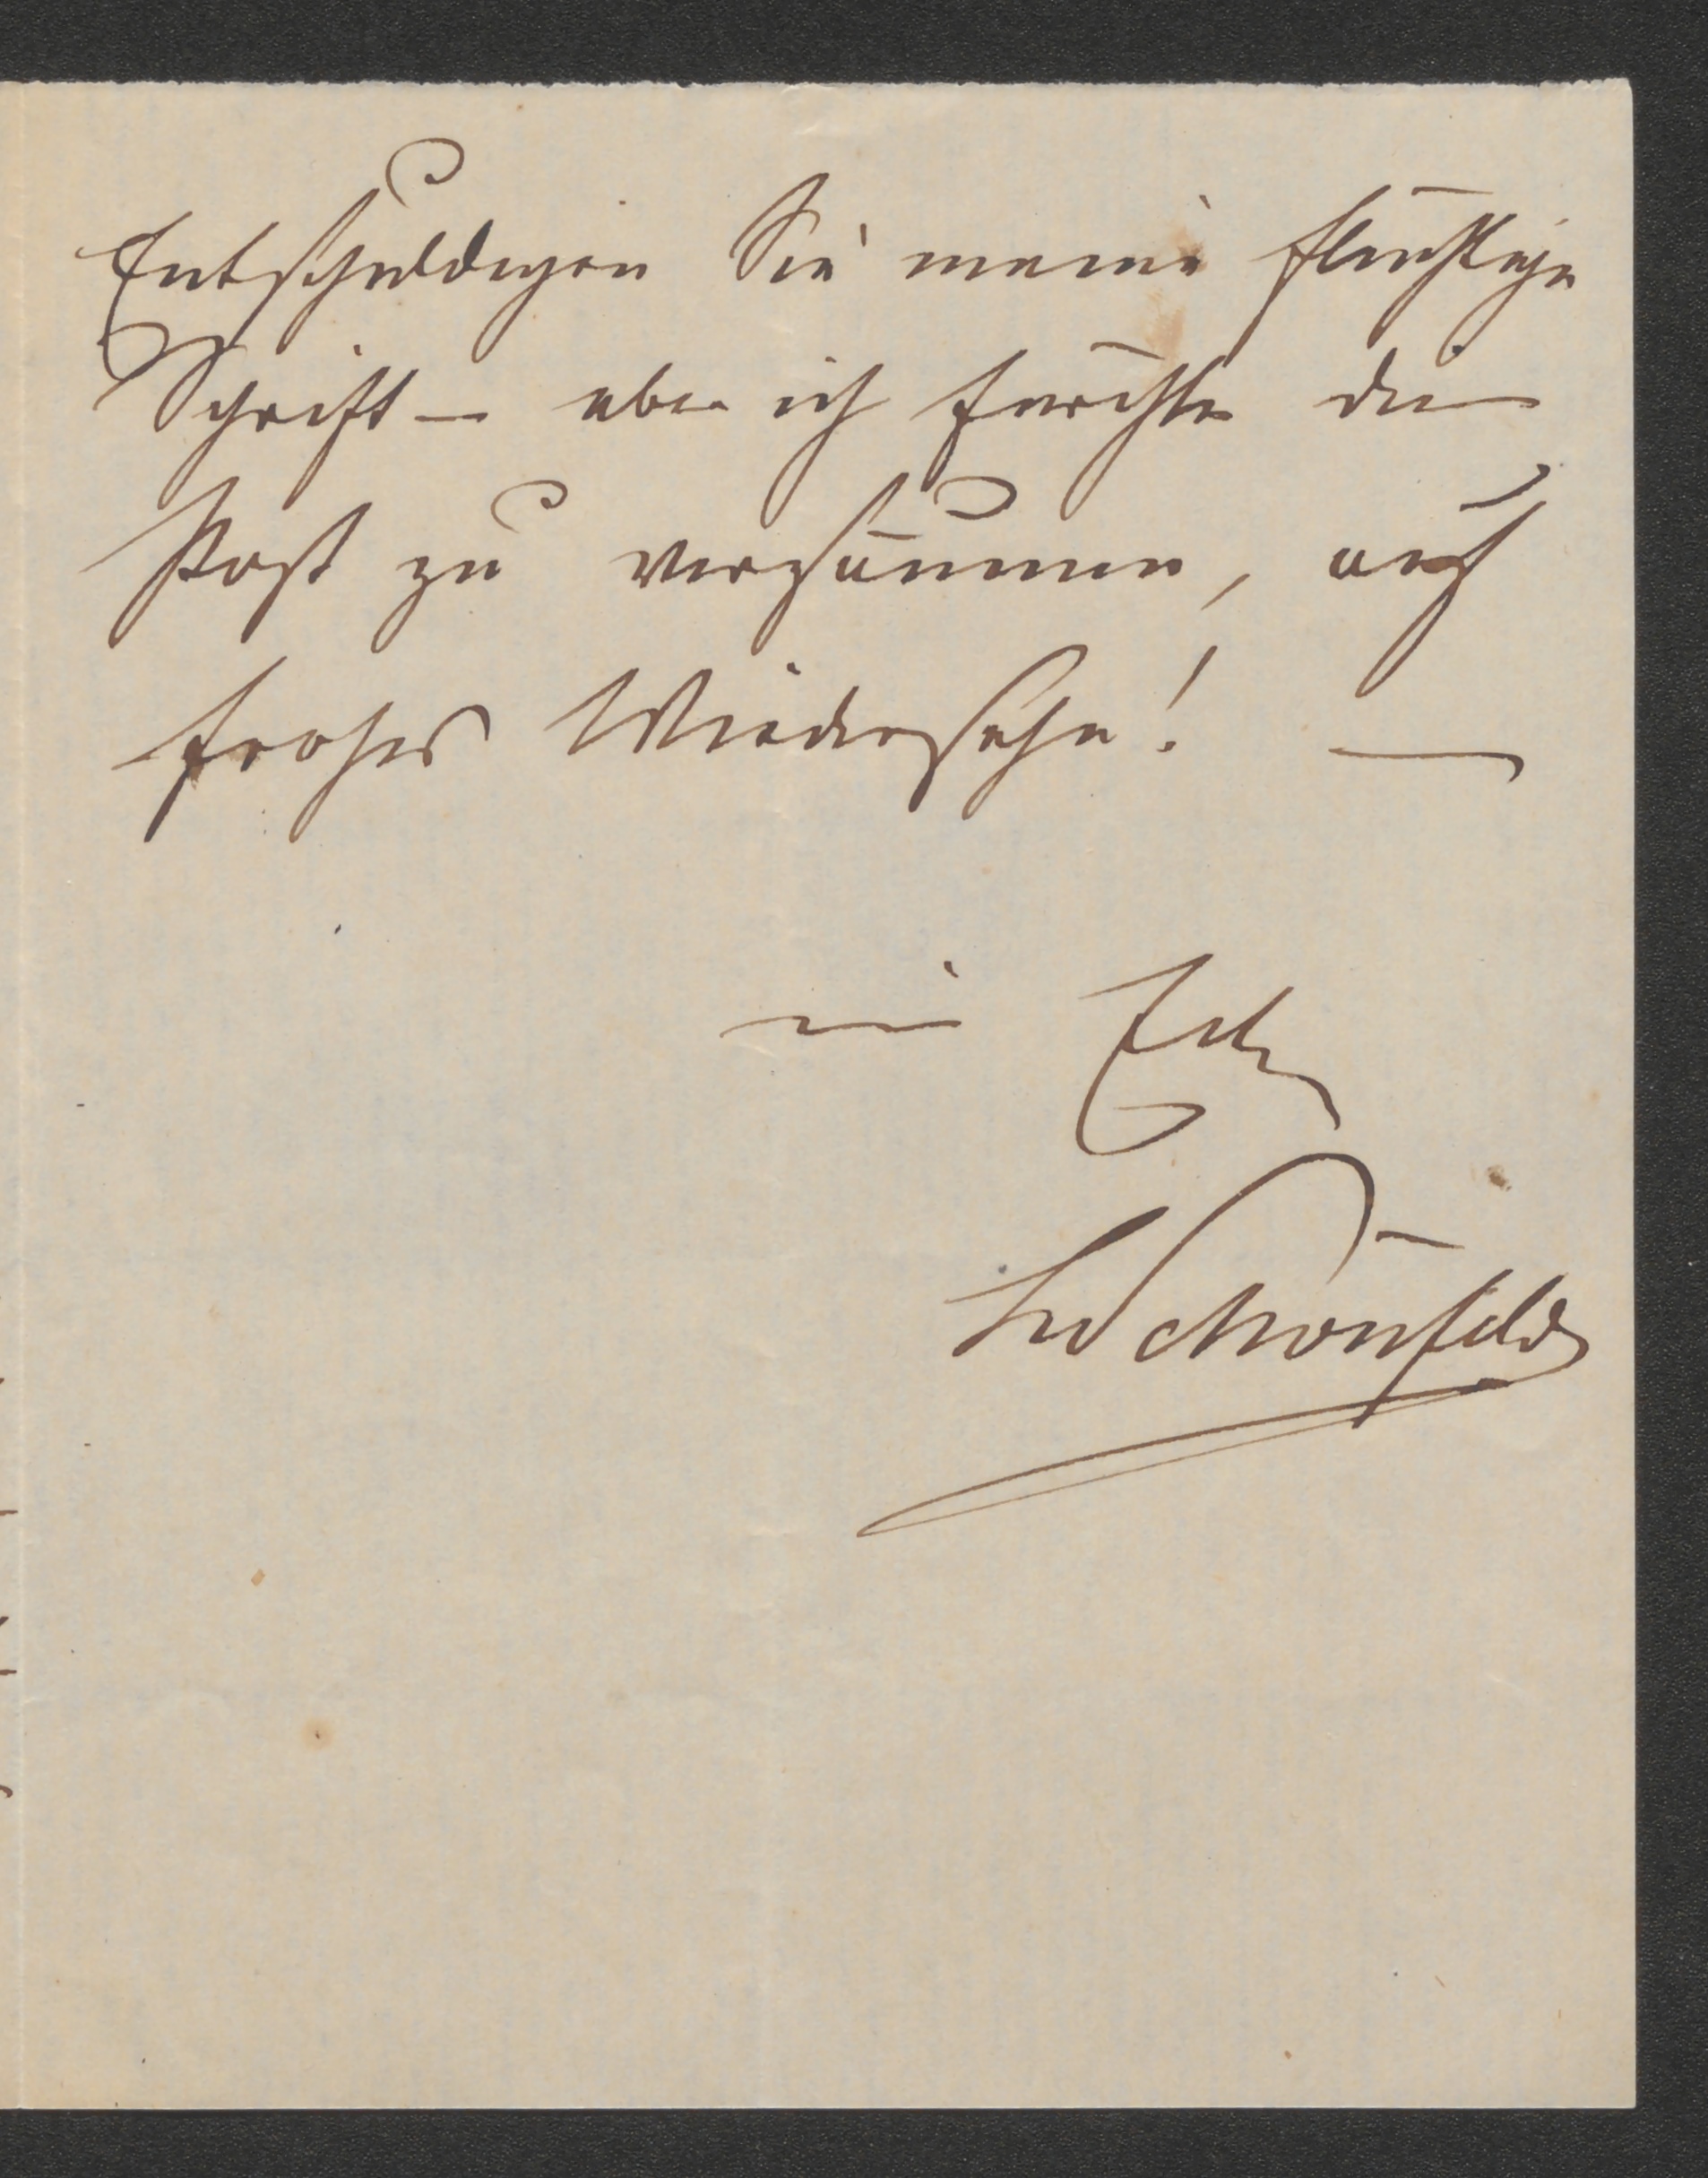 Entschuldigen Sie meine flüchtige
Schrift – aber ich fürchte die
Post zu versäumen, auf
frohes Wiedersehn! —
in Eile
Schönfeld